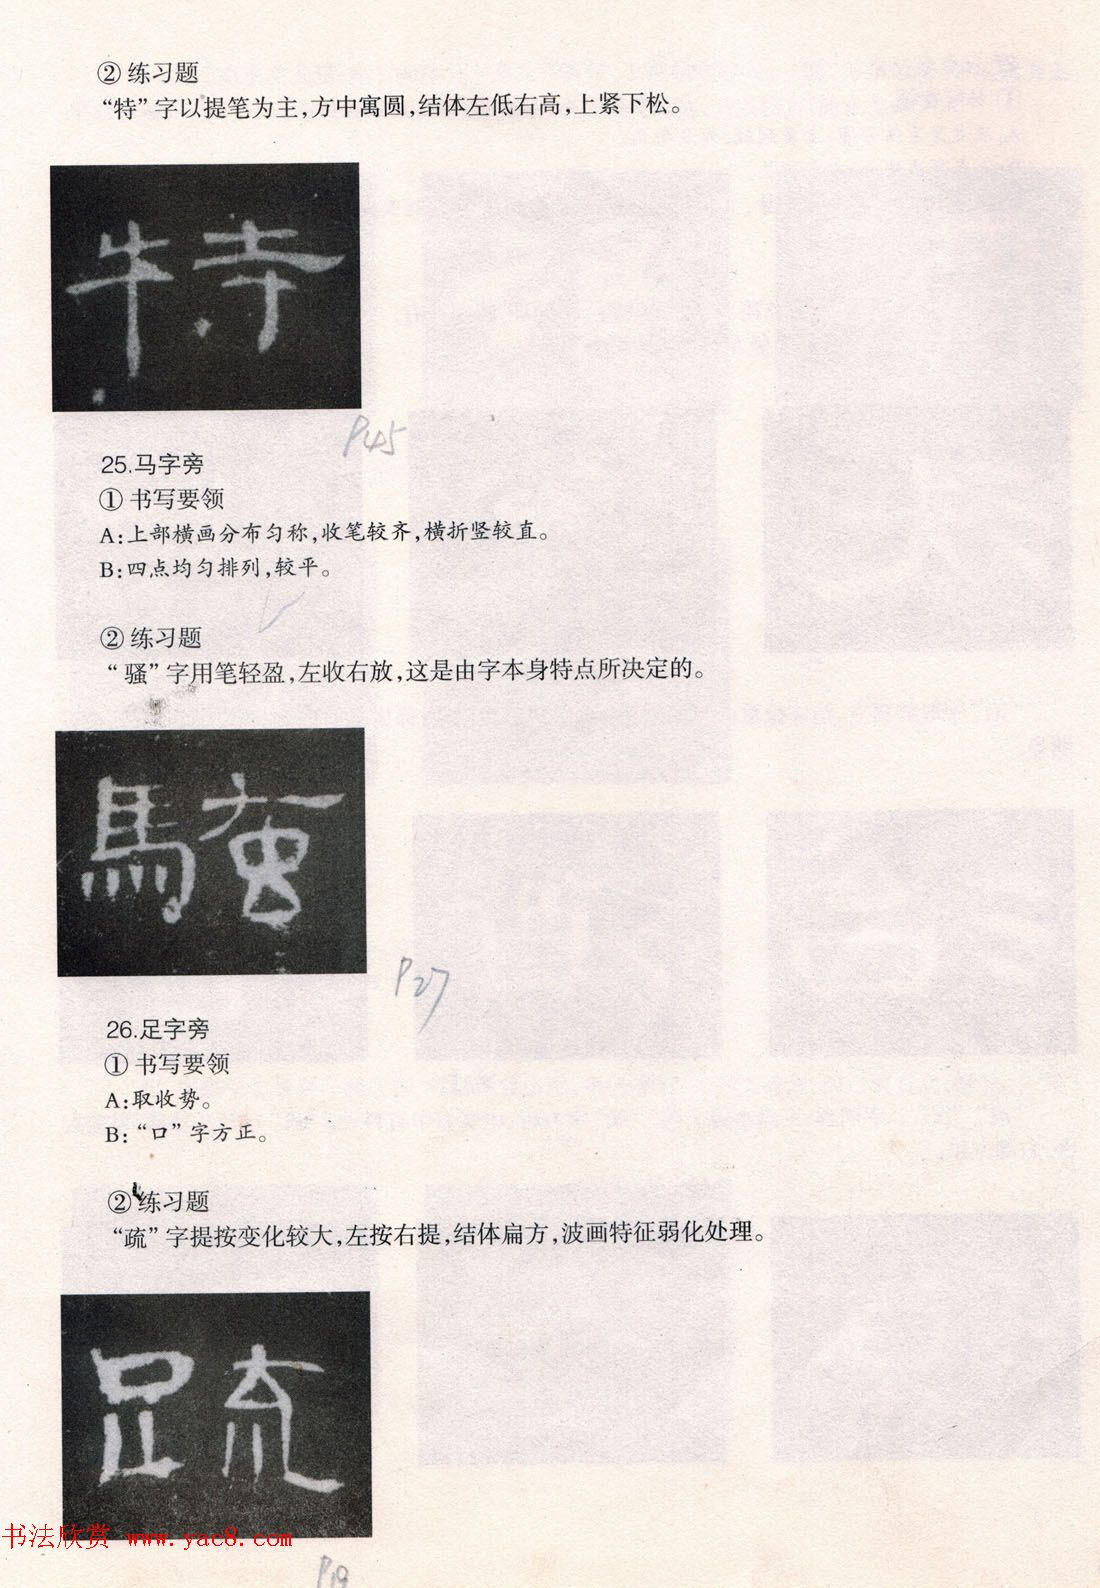 ②练习题
“特”字以提笔为主,方中寓圆,结体左低右高,上紧下松。
特
P45
25.马字旁
①书写要领
A:上部横画分布匀称,收笔较齐,横折竖较直。
B:四点均匀排列,较平。
②练习题
“骚”字用笔轻盈,左收右放,这是由字本身特点所决定的。
騷
P27
26.足字旁
①书写要领
A:取收势。
B:“口”字方正。
②练习题
“疏”字提按变化较大,左按右提,结体扁方,波画特征弱化处理。
疏
书法欣赏 www.yac8.com
P19